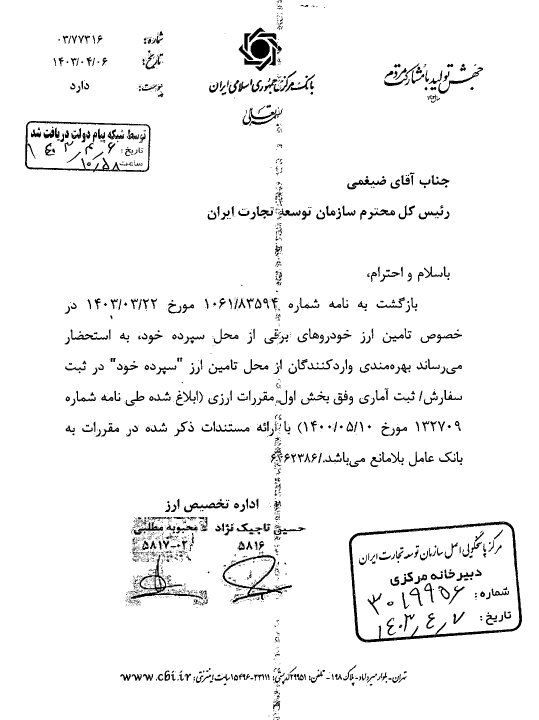 شماره: ۰۳/۷۷۳۱۶
تاریخ: ۱۴۰۳/۰۴/۰۶
پیوست: دارد
بانک مرکزی جمهوری اسلامی ایران
بسمه تعالی
جهش تولید با مشارکت مردم
توسط شبکه پیام دولت دریافت شد
تاریخ: ۱۴۰۳/۴/۶
ساعت ۱۰/۵۸
جناب آقای ضیغمی
رئیس کل محترم سازمان توسعه تجارت ایران
باسلام و احترام،
بازگشت به نامه شماره ۱۰۶۱/۸۳۵۹۴ مورخ ۱۴۰۳/۰۳/۲۲ در
خصوص تامین ارز خودروهای برقی از محل سپرده خود، به استحضار
می‌رساند بهره‌مندی واردکنندگان از محل تامین ارز "سپرده خود" در ثبت
سفارش/ ثبت آماری وفق بخش اول مقررات ارزی (ابلاغ شده طی نامه شماره
۱۳۲۷۰۹ مورخ ۱۴۰۰/۰۵/۱۰) با ارائه مستندات ذکر شده در مقررات به
بانک عامل بلامانع می‌باشد./
اداره تخصیص ارز
حسین تاجیک نژاد
محبوبه مطلبی
۵۸۱۶
۵۸۱۷-۰۲
مرکز پاسخگویی اصل سازمان توسعه تجارت ایران
دبیرخانه مرکزی
شماره: ۳۰۱۹۹۵۶
تاریخ: ۱۴۰۳/۴/۷
تهران- بلوار میرداماد- پلاک ۱۹۸- تلفن: ۲۹۹۵۱ کد پستی: ۳۳۱۱۱-۱۵۴۹۶ سایت اینترنتی: www.cbi.ir